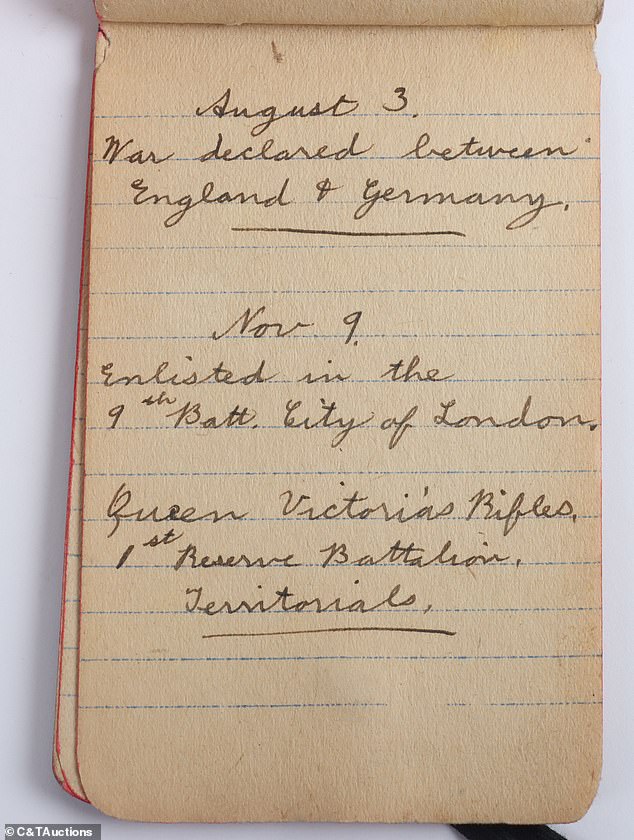 August 3.
War declared between
England & Germany.
Nov 9.
Enlisted in the
9th Batt. City of London.
Queen Victoria's Rifles,
1st Reserve Battalion,
Territorials.
© C&TAuctions